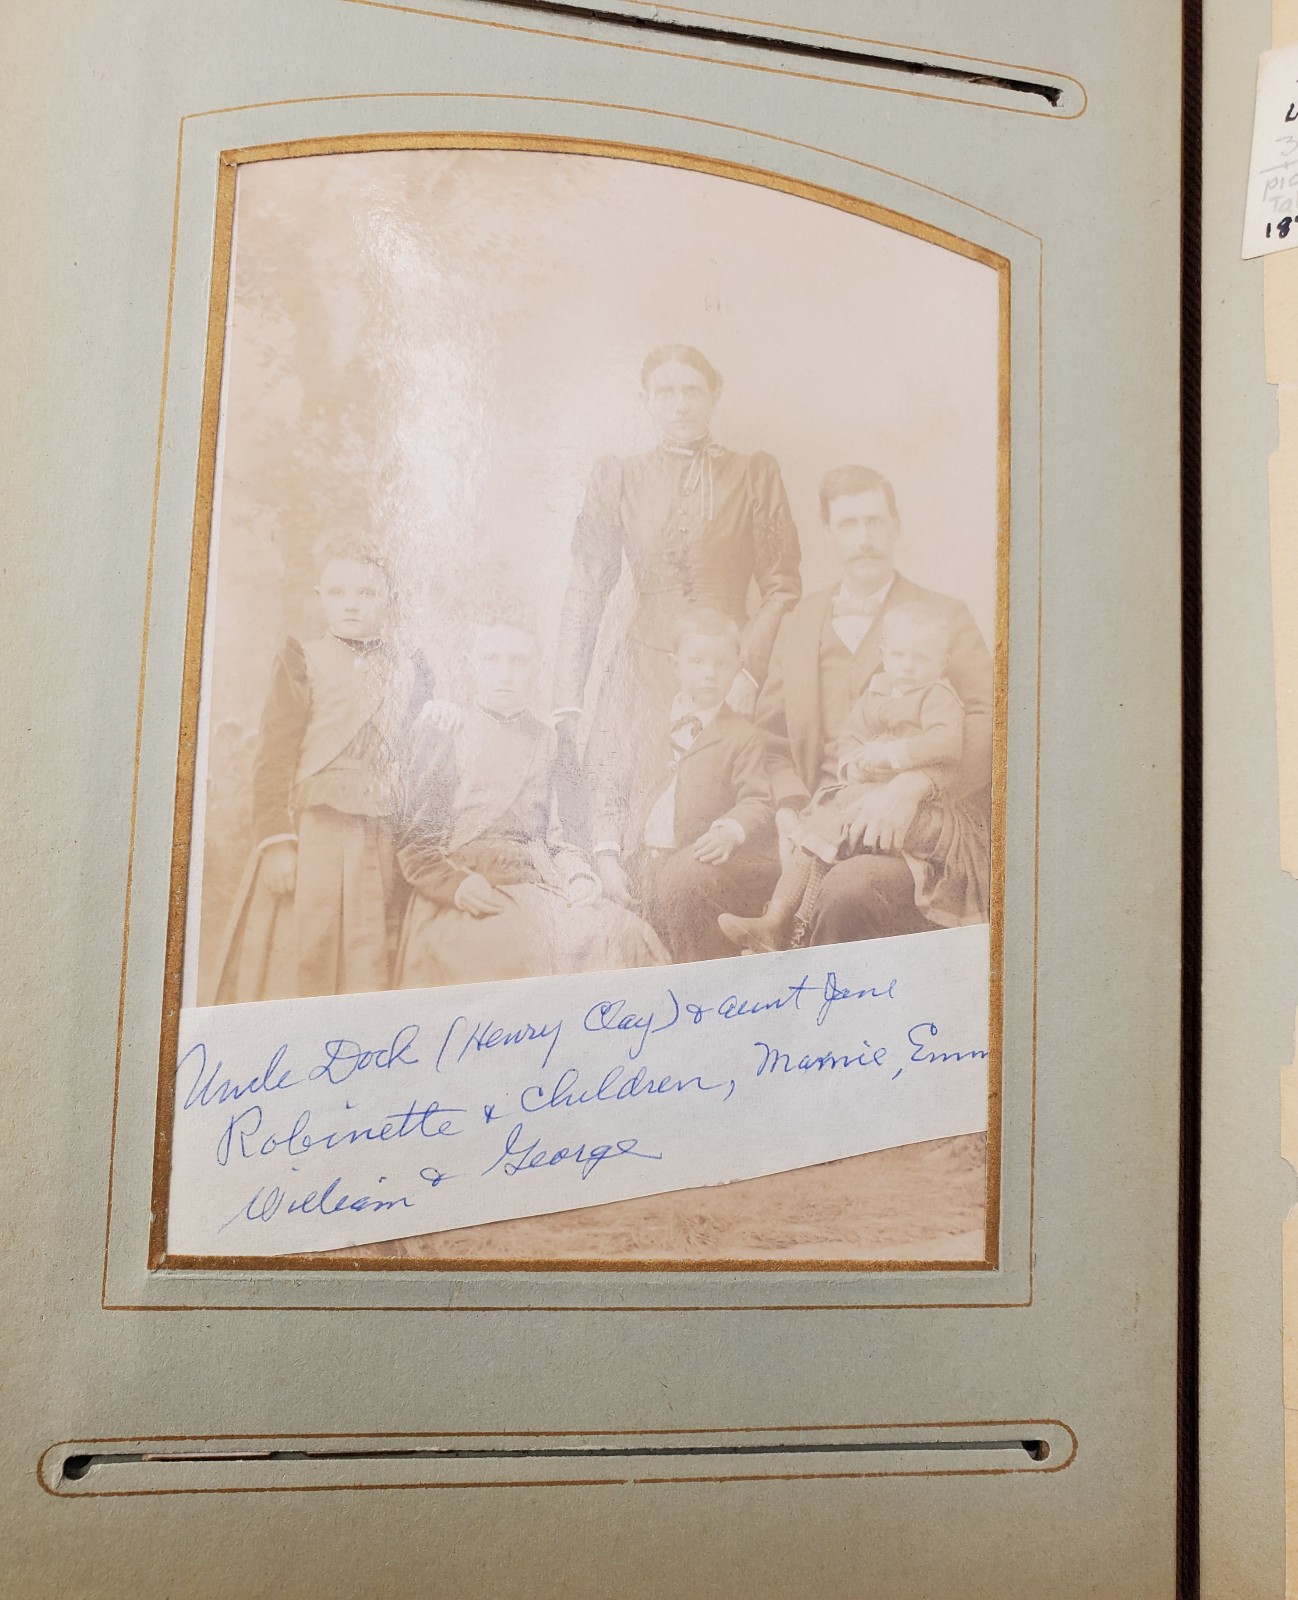 Uncle Dock (Henry Clay) & aunt Jane
Robinette & children, Mamie, Emm
William & George
3
pic
Ta
18